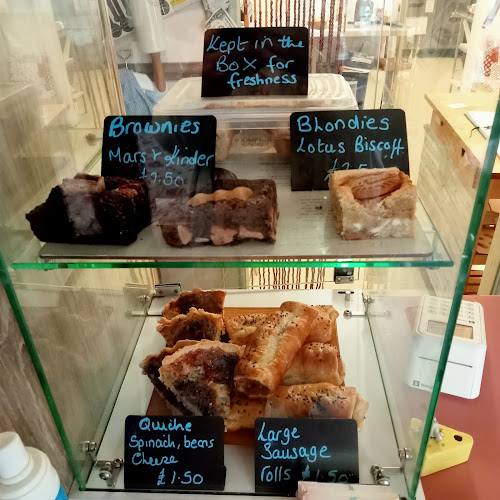 Kept in the
BOX for
freshness
Brownies
Mars + Kinder
£1.50
Blondies
Lotus Biscoff
Quiche
Spinach, beans
Cheese
£1.50
Large
Sausage
rolls £1.50